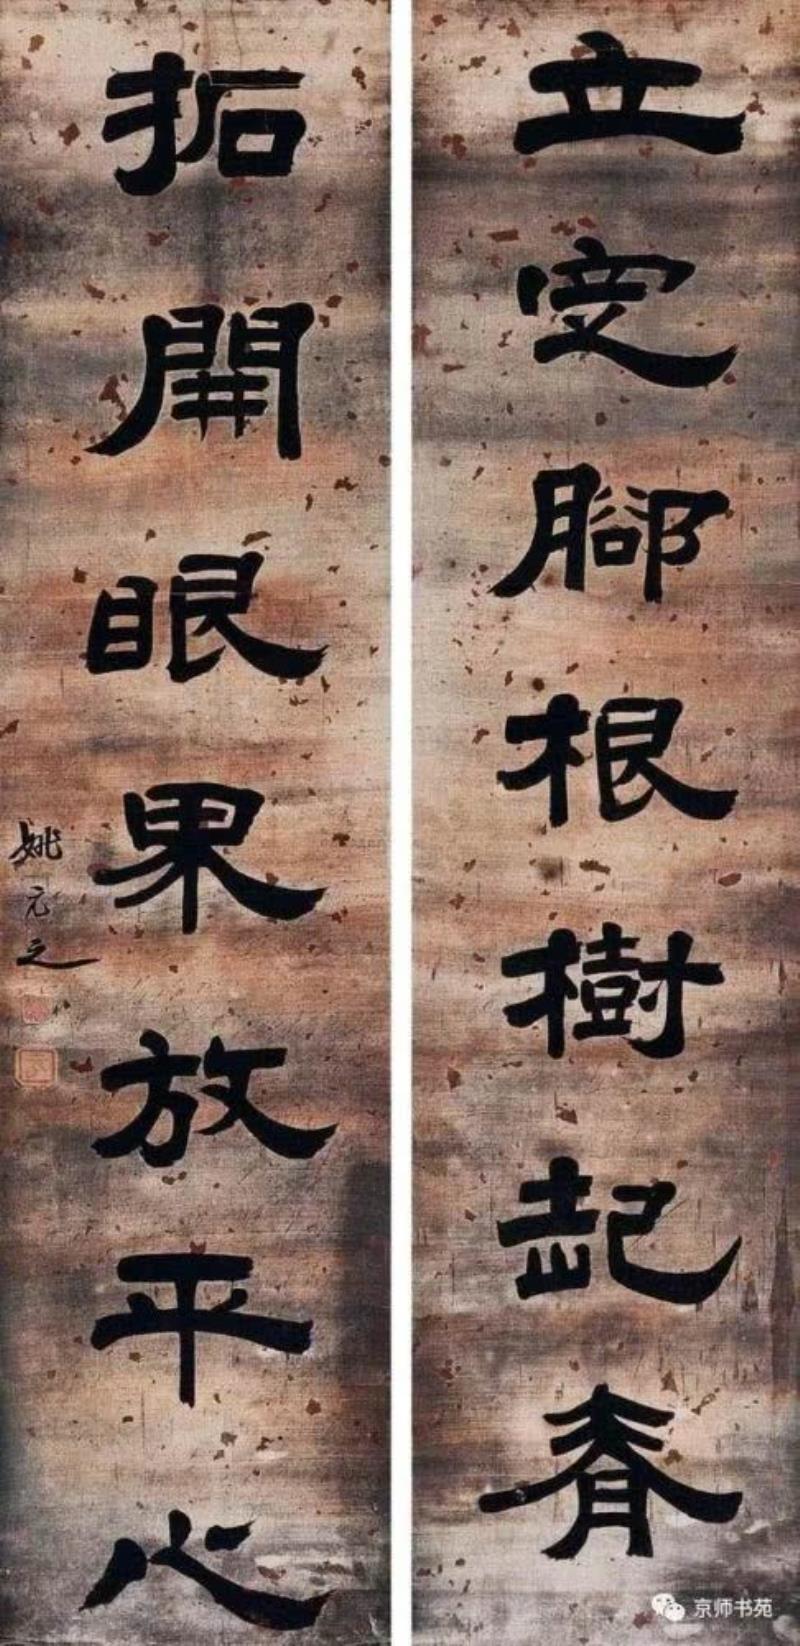 立定腳根樹起脊
拓開眼界放平心
姚元之
京师书苑